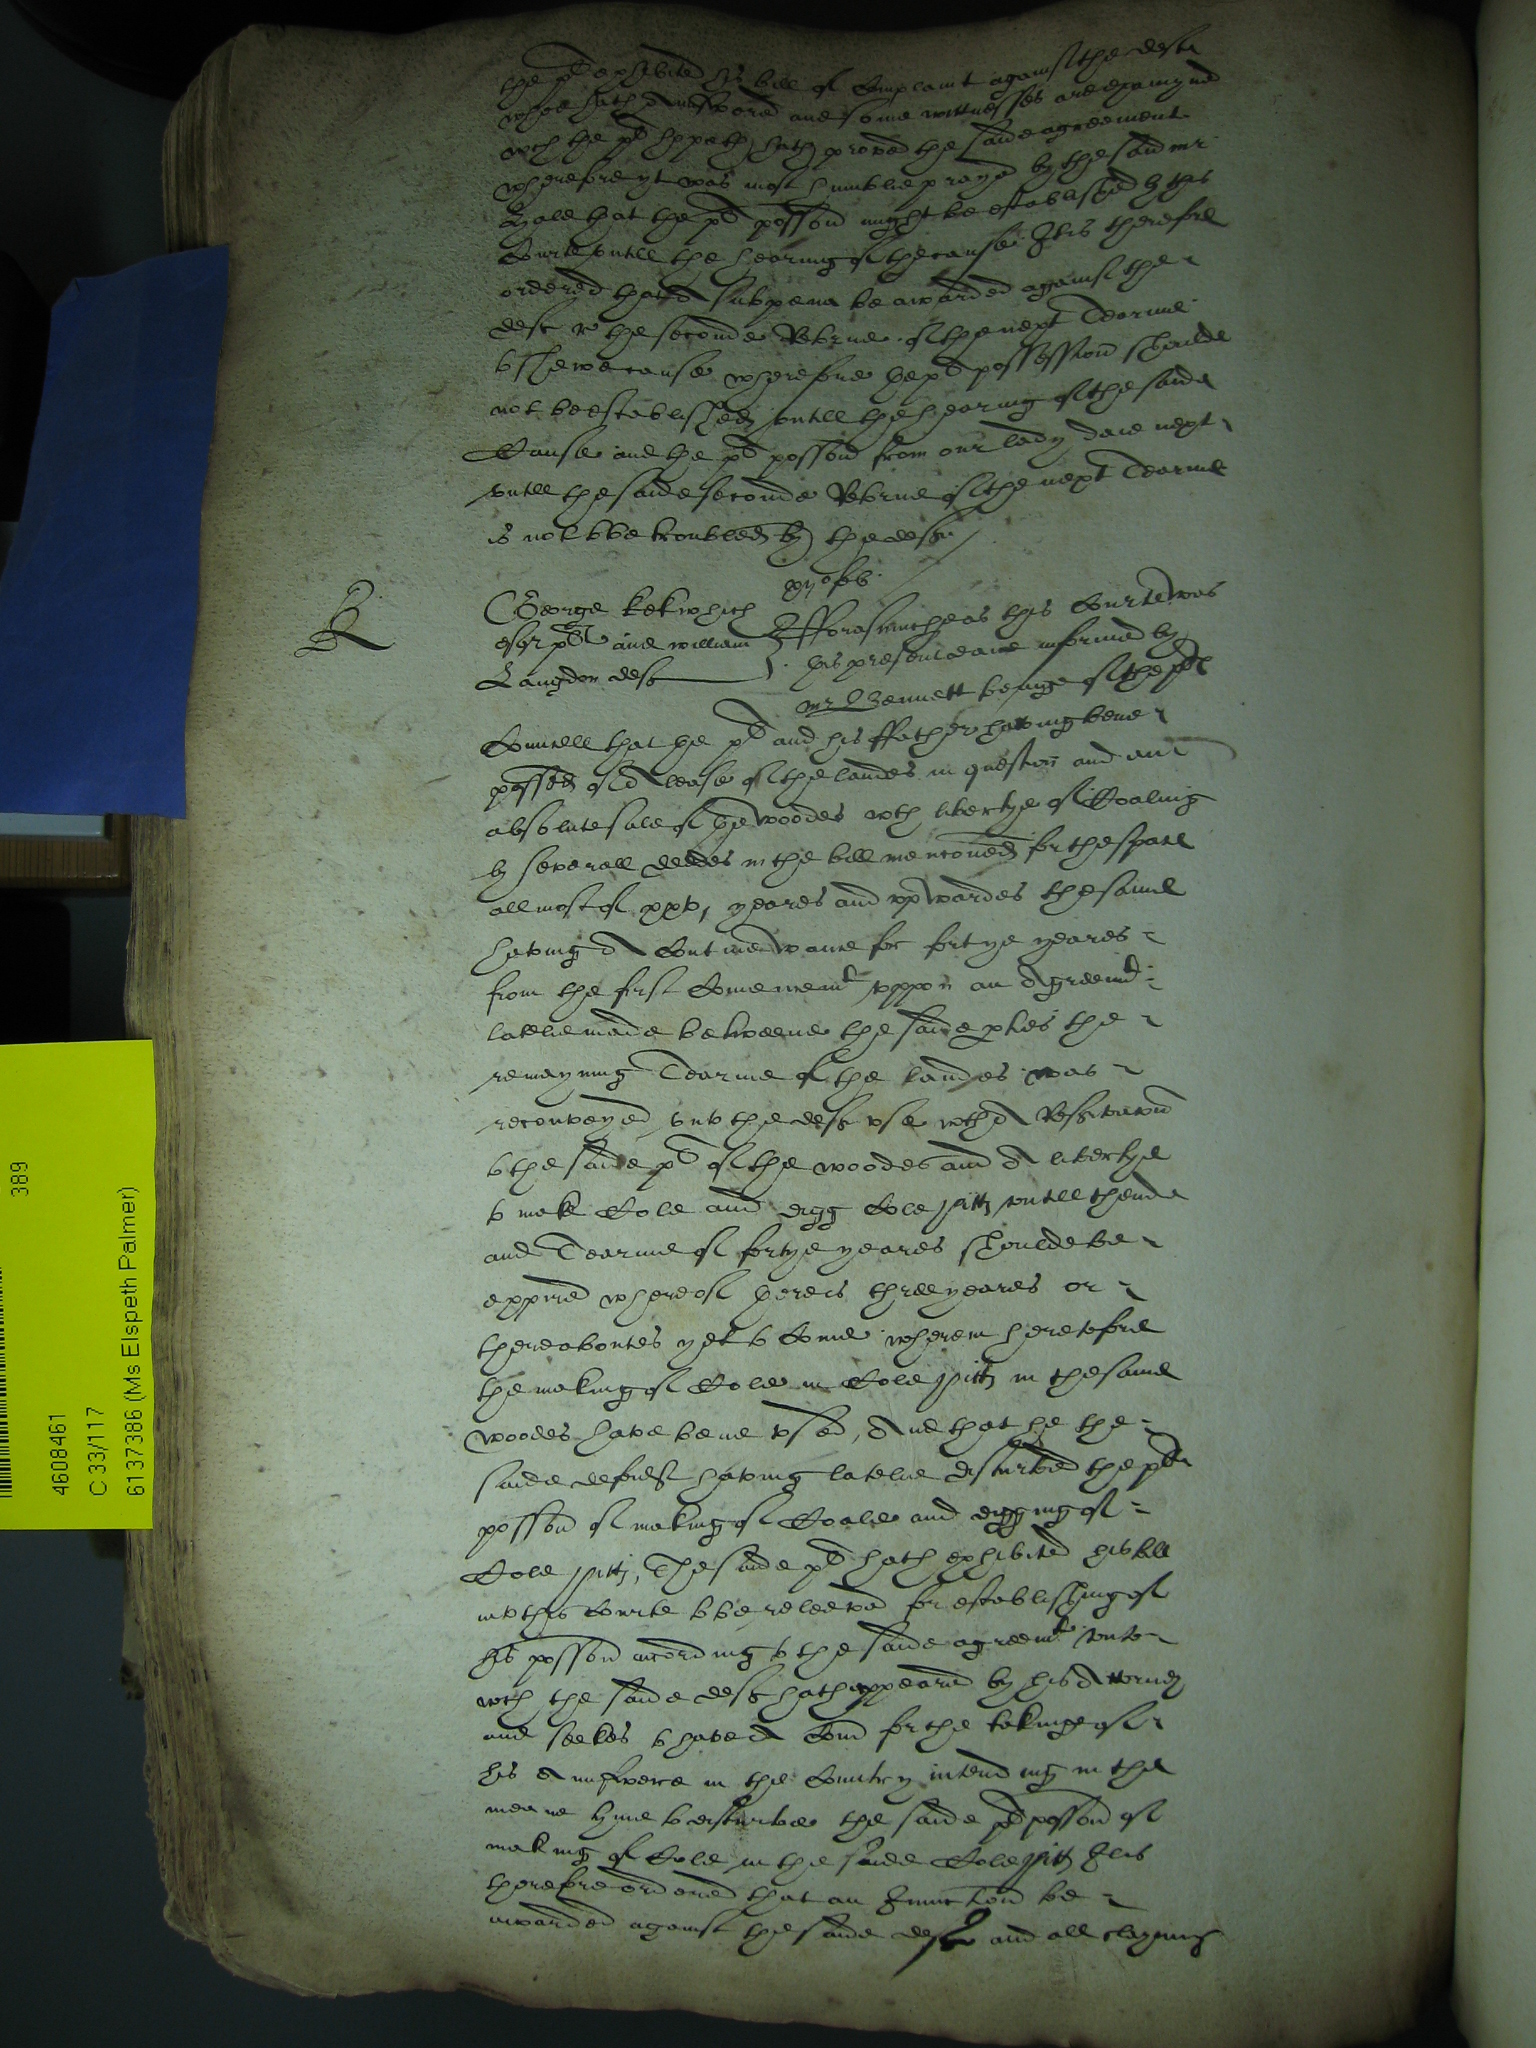 the pl exhibited his bill of Complaint against the deft
whoe hath Answered and some wittnesses are examyned
wch the pl hopeth hath proved the saide agreement
wherefore yt was most humblie prayed by the said mr
Hale that the pl possion might be established by this
Courte vntill the hearing of the cause It is therefore
ordered that A subpena be awarded against the
deft the seconde Retorne of the next Tearme
to shewe cause wherefore the pl possession shoulde
not be established vntill the hearing of the saide
Cause and the pl possion from our lady daie next
vntill the saide seconde Retorne of the next Tearme
is not to be troubled by the deft
George kekwhich
esqr pl and william
Langdon deft
Fforasmuch as this Courte was
this present daie informed by
mr Bennett beinge of the pl
Councell that the pl and his ffather having bene
possed of A lease of the landes in question and an
absolute sale of the woodes wth libertye of Coaling
by severall deedes in the bill mencioned for the space
allmost of xxxv yeares and vpwardes the same
having A Contynewance for fortye yeares
from the first Comencemt vppon an Agreemt
latelie made betweene the saide pties the
remayning Tearme of the landes was
reconveyed vnto the deft vse wth A Reservacion
to the saide pl of the woodes and A libertye
to make Cole and digg Cole pitts vntill thende
and Tearme of fortye yeares shoulde be
expired whereof there is three yeares or
thereaboutes yet to Come wherein heretofore
the making of Cole in Cole pitts in the same
woodes have bene vsed, And that he the
saide defendt having latelie disturbed the pl
possion of making of Coale and digging of
Cole pitts, The saide pl hath exhibited his bill
into this Courte to be releeved for establishing of
his possion according to the saide agreemt vnto
wch the saide deft hath appeared by his Attorney
and seekes to have A Com for the takinge of
his Annswere in the Country intending in the
meane tyme to disturbe the saide pl possion of
making of Cole in the saide Cole pitts It is
therefore ordered that an Iniunction be
awarded against the saide deft and all clayming
R
389
4608461
C 33/117
6137386 (Ms Elspeth Palmer)